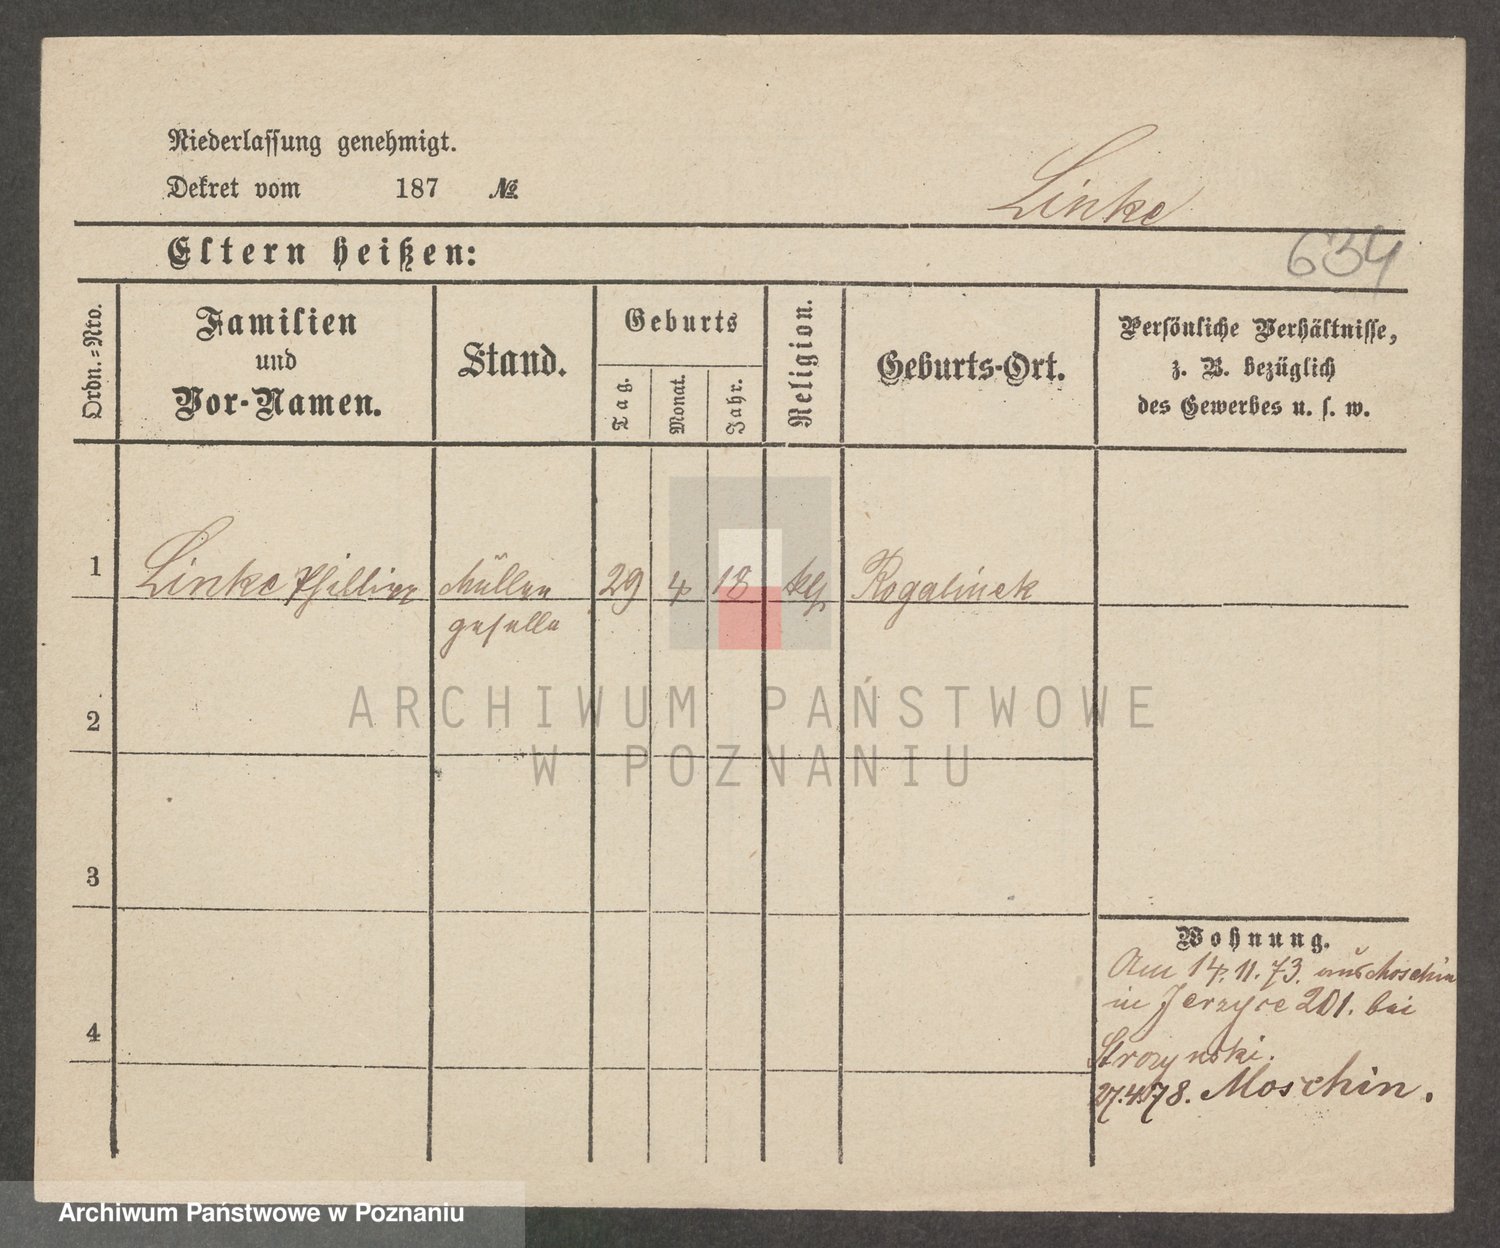 Niederlassung genehmigt.
Dekret vom 187 №
Linke
Eltern heißen:
634
Ordn.=Nro.
Familien
und
Vor-Namen.
Stand.
Geburts
Tag.
Monat.
Jahr.
Religion.
Geburts-Ort.
Persönliche Verhältnisse,
z. B. bezüglich
des Gewerbes u. s. w.
1 Linke Müller 29 4 18 Rogalinek
geselle
2
3
4
Wohnung.
Am 14.11.73. aus Moschin
in Jerzyce 201. bei
27.4.78. Moschin.
ARCHIWUM PAŃSTWOWE
W POZNANIU
Archiwum Państwowe w Poznaniu